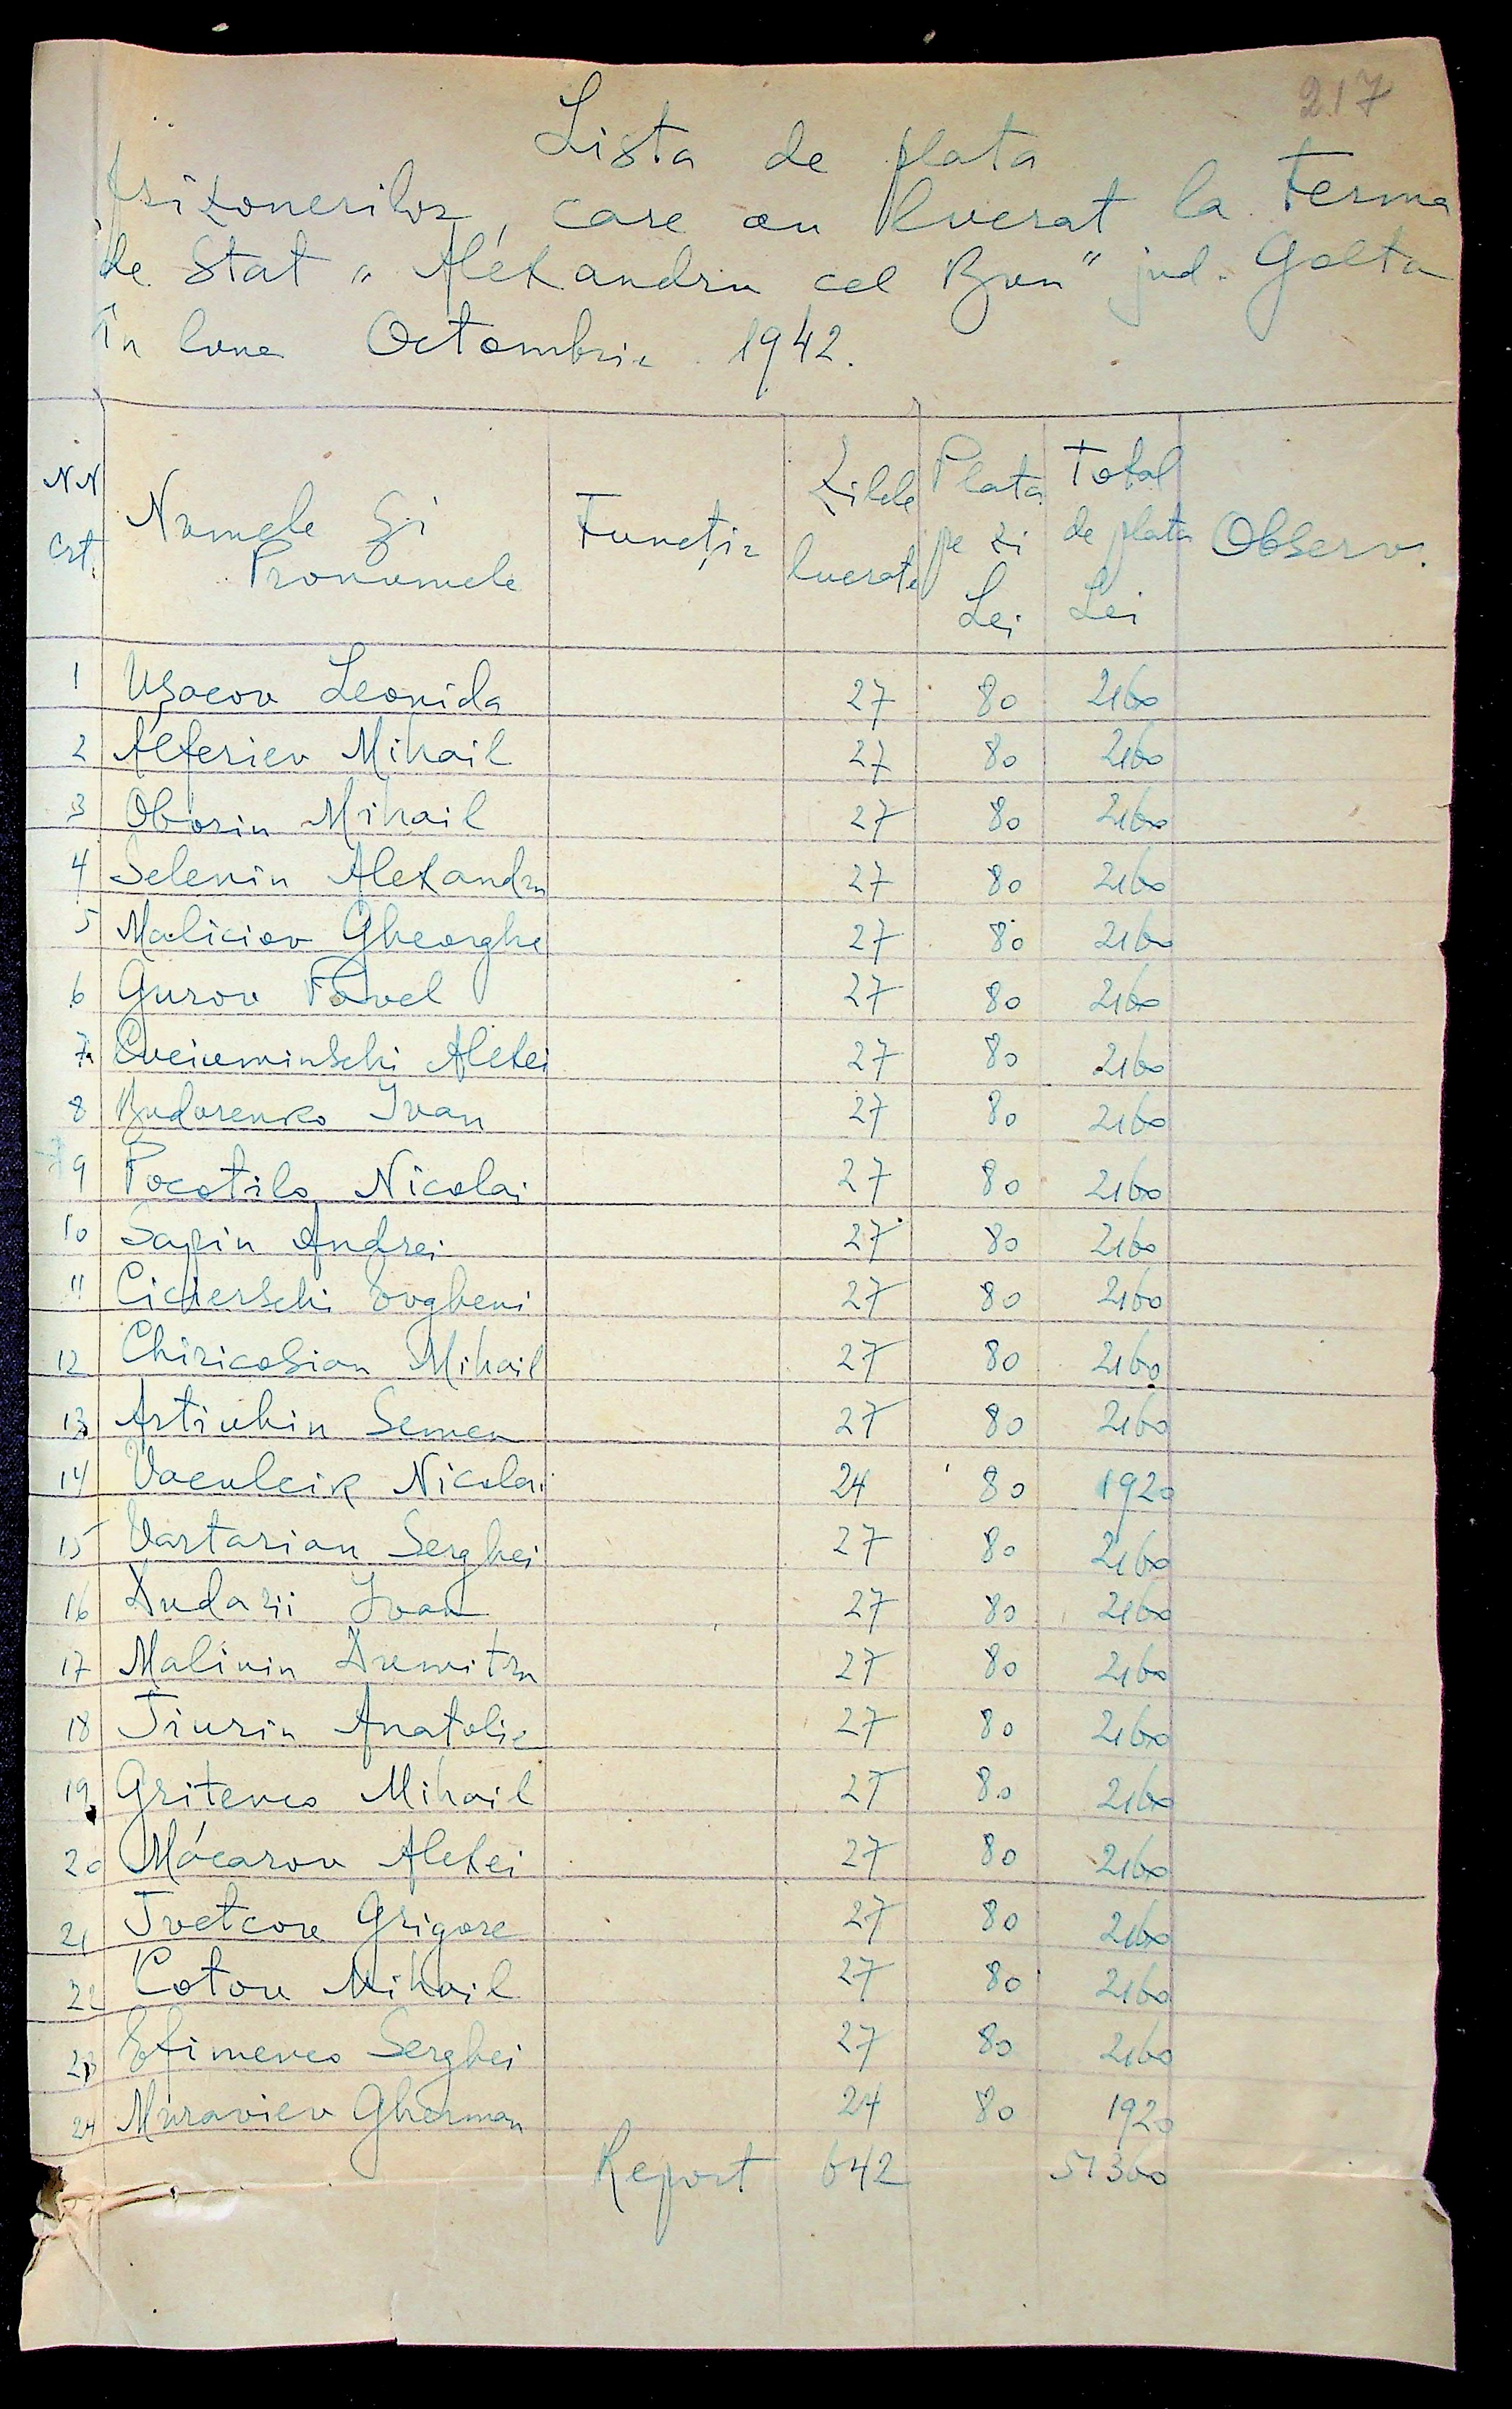 217
Lista de plata
prizonerilor, care au lucrat la Ferma
de Stat „Alexandru cel Bun" jud. Golta
în luna Octombrie 1942.
NN crt. Numele și Pronumele Funcția Zilele lucrate Plata pe zi Lei Total de plata Lei Observ.
1 Ușacov Leonida 27 80 2160
2 Alferiev Mihail 27 80 2160
3 Oborin Mihail 27 80 2160
4 Selenin Alexandru 27 80 2160
5 Maliciov Gheorghe 27 80 2160
6 Gurov Pavel 27 80 2160
7 Alexei 27 80 2160
8 Budorenko Ivan 27 80 2160
9 Pocotilo Nicolai 27 80 2160
10 Sapin Andrei 27 80 2160
11 Cicherschi Evgheni 27 80 2160
12 Chiricosian Mihail 27 80 2160
13 Artiuhin Semen 27 80 2160
14 Vaculcik Nicolai 24 80 1920
15 Vartarian Serghei 27 80 2160
16 Dudarii Ivan 27 80 2160
17 Malinin Dumitru 27 80 2160
18 Tiurin Anatolie 27 80 2160
19 Gritenco Mihail 27 80 2160
20 Macarov Alexei 27 80 2160
21 Tvetcov Grigore 27 80 2160
22 Cotov Mihail 27 80 2160
23 Efimenco Serghei 27 80 2160
24 Muraviev Gherman 24 80 1920
Report 642 51360